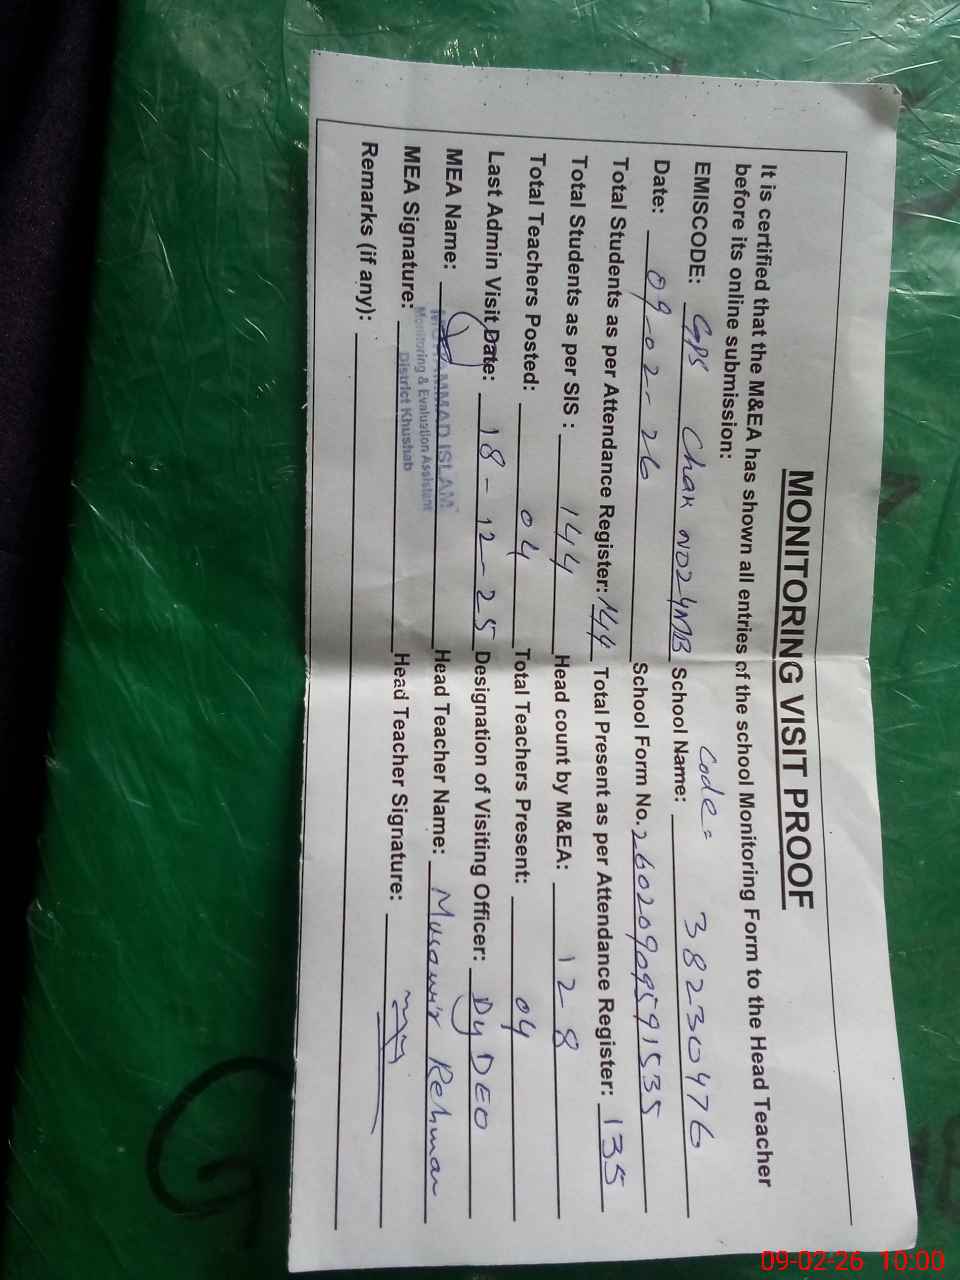 MONITORING VISIT PROOF
It is certified that the M&EA has shown all entries of the school Monitoring Form to the Head Teacher
before its online submission:
Code: 38230476
EMISCODE: GPS Chak No 24MB School Name:
Date: 09-02-26 School Form No. 26020909591535
Total Students as per Attendance Register: 144 Total Present as per Attendance Register: 135
Total Students as per SIS : 144 Head count by M&EA: 128
Total Teachers Posted: 04 Total Teachers Present: 04
Last Admin Visit Date: 18-12-25 Designation of Visiting Officer: Dy DEO
MEA Name: MUHAMMAD ISLAM Head Teacher Name: Musawir Rehman
Monitoring & Evaluation Assistant
District Khushab
MEA Signature: Head Teacher Signature:
Remarks (if any):
09-02-26 10:00